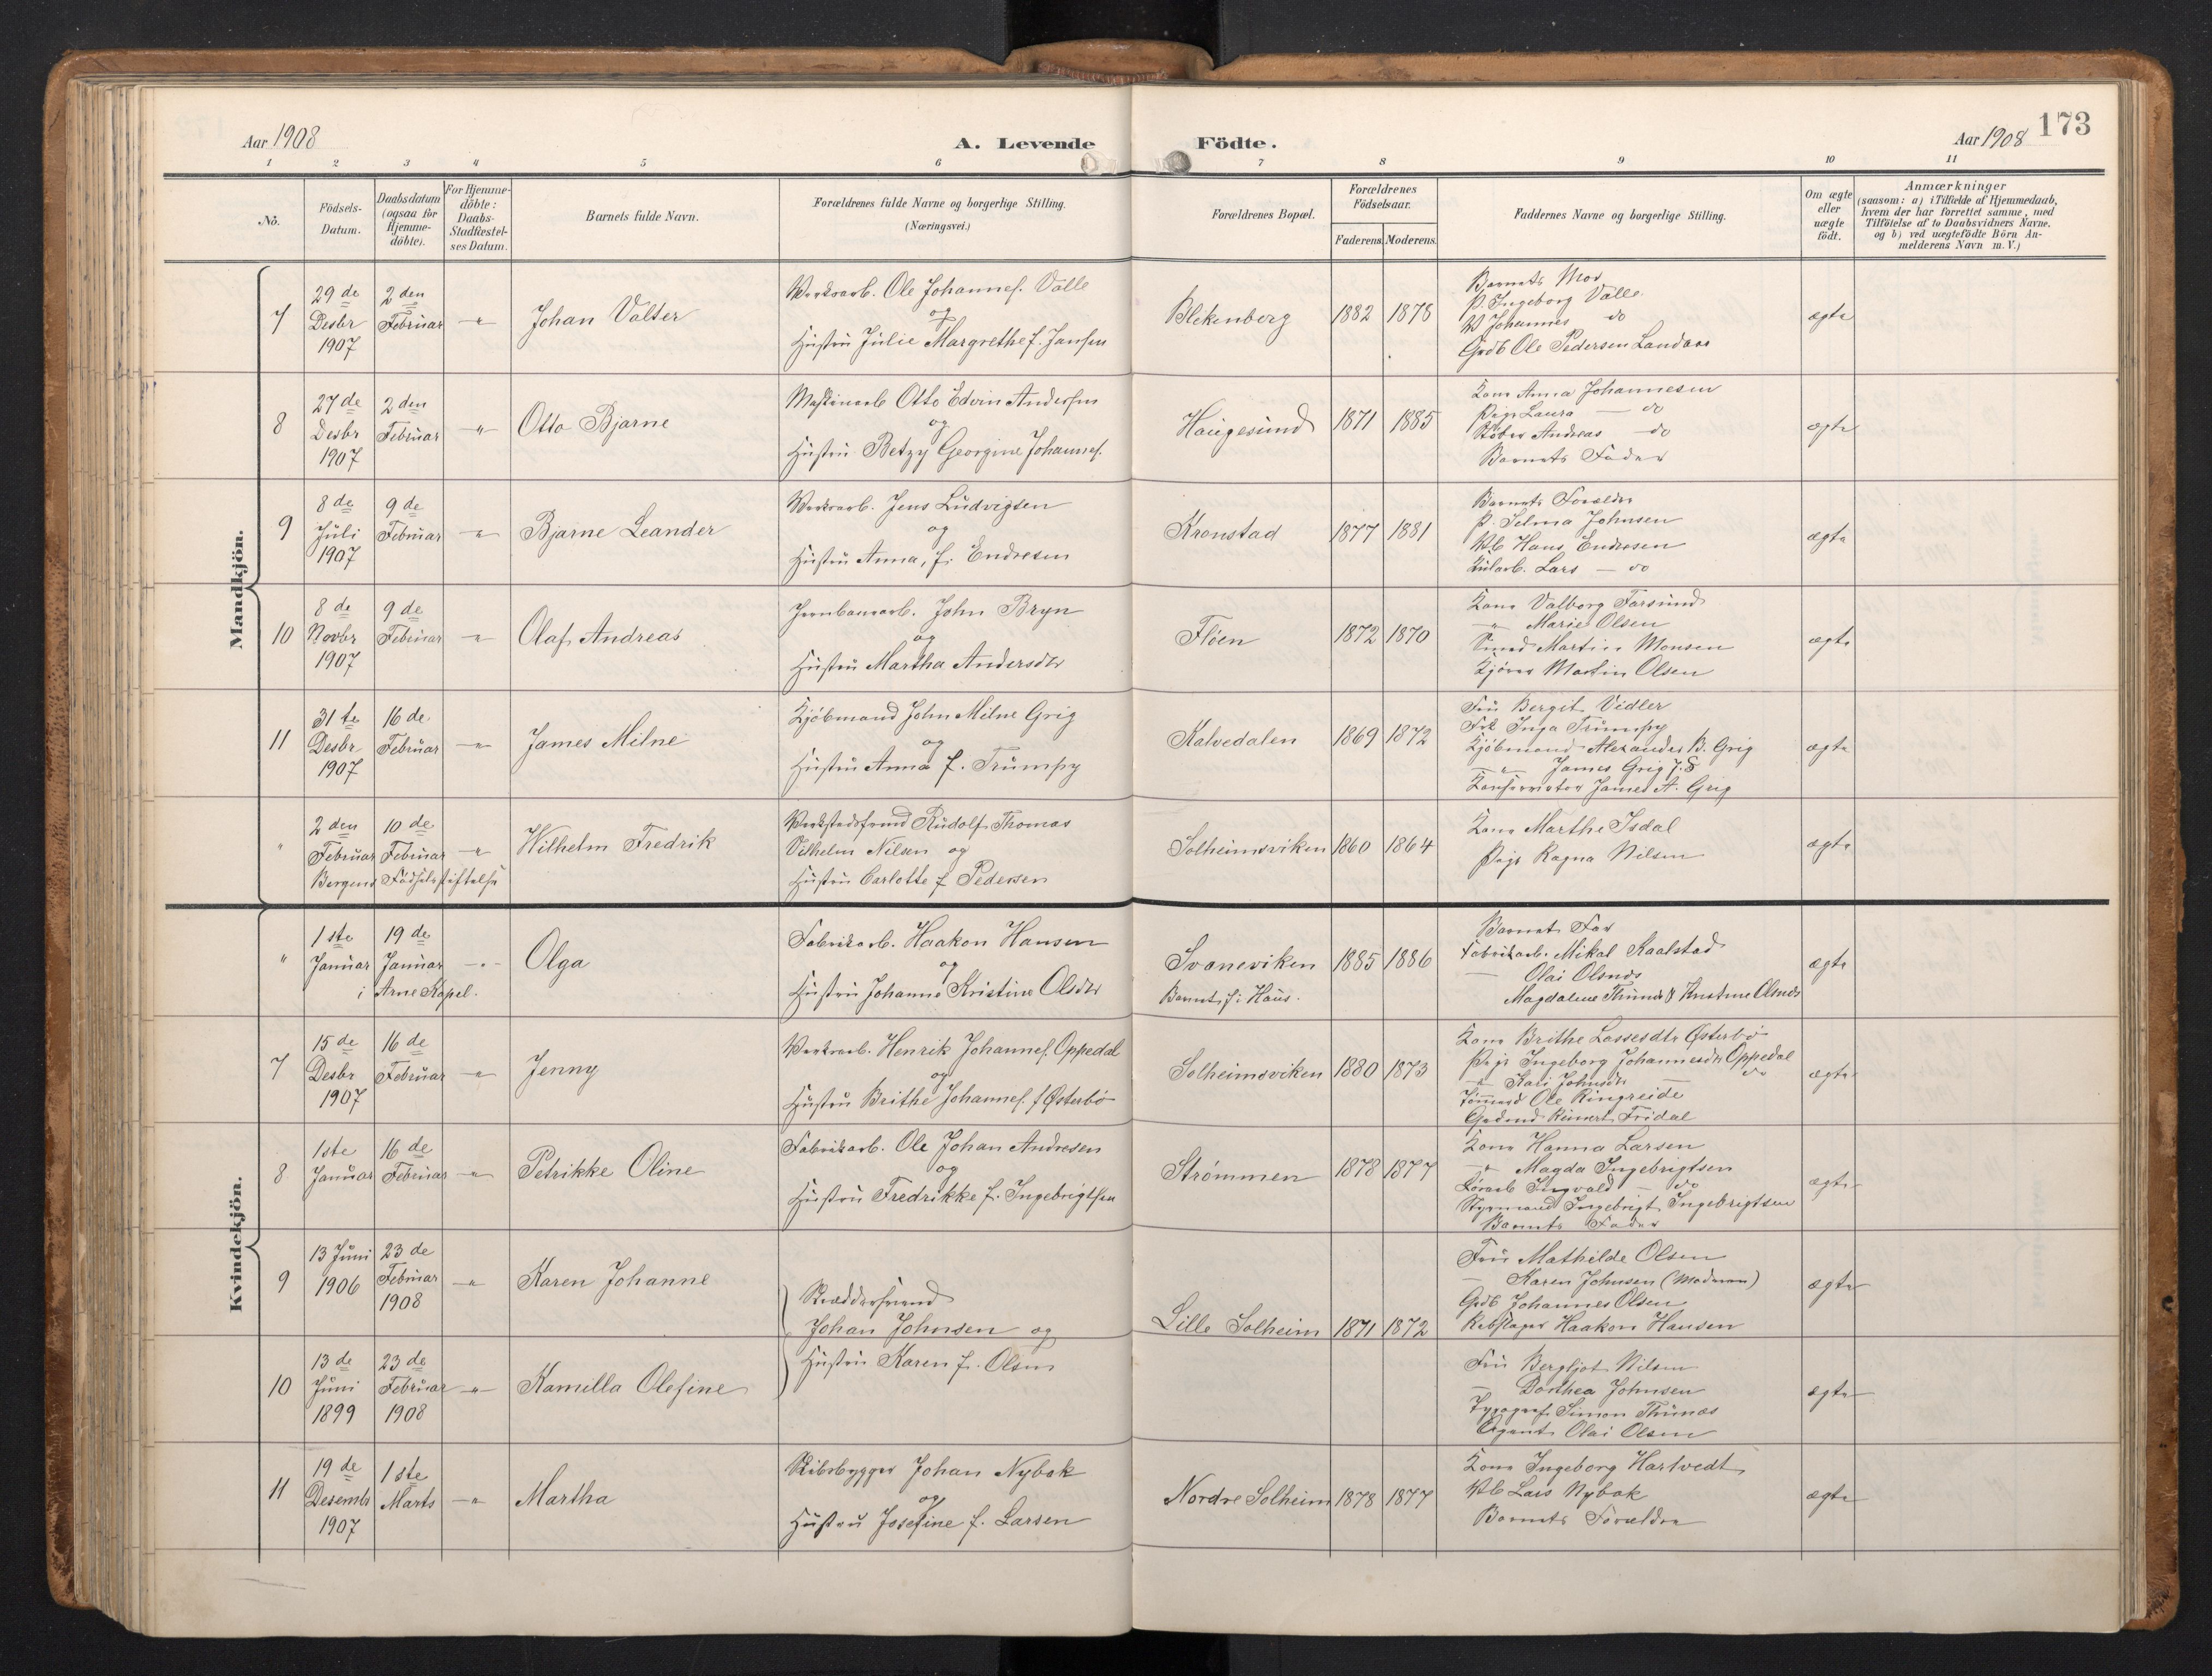 Aar 1908
A. Levende
Födte.
Aar 1908
173
1 2 3 4 5 6 7 8 9 10 11
No.
Födsels-
Datum.
Daabsdatum
(ogsaa for
Hjemme-
döbte).
For Hjemme-
döbte:
Daabs-
Stadfæstel-
ses Datum.
Barnets fulde Navn.
Forældrenes fulde Navne og borgerlige Stilling.
(Næringsvei.)
Forældrenes Bopæl.
Forældrenes
Födselsaar.
Faderens.
Moderens.
Faddernes Navne og borgerlige Stilling.
Om ægte
eller
uægte
födt.
Anmærkninger
(saasom: a) i Tilfælde af Hjemmedaab,
hvem der har forrettet samme, med
Tilföielse af to Daabsvidners Navne.
og b) ved uægtefödte Börn An-
melderens Navn m. V.)
Mandkjön.
7
29 de
Desbr
1907
2 den
Februar
"
Johan Valter
Verksarb. Ole Johannes. Valle
og
Hustru Julie Margrethe f. Jansen
Blekenberg
1882
1878
Barnets Mor
P. Ingeborg Valle
Johannes do
Grdb Ole Pedersen Landaas
ægte
8
27 de
Desbr
1907
2 den
Februar
"
Otto Bjarne
Maskinarb Otto Edvin Andersen
og
Hustru Betzy Georgine Johannes.
Haugesund
1871
1885
Kone Anna Johannesen
Pige Laura — do
Støber Andreas — do
Barnets Fader
ægte
9
8 de
Juli
1907
9 de
Februar
"
Bjarne Leander
Verksarb. Jens Ludvigsen
og
Hustru Anna, f. Endresen
Kronstad
1877
1881
Barnets Forældre
P. Selma Johnsen
Hans Endresen
Lars — do
ægte
10
8 de
Novbr
1907
9 de
Februar
"
Olaf Andreas
Jernbanearb. John Bryn
og
Hustru Martha Andersdtr
Fløen
1872
1870
Kone Valborg Farsund
" Marie Olsen
Smed Martin Monsen
Kjører Martin Olsen
ægte
11
31 te
Desbr
1907
16 de
Februar
"
James Milne
Kjöbmand John Milne Grig
og
Hustru Anna f. Trumpy
Kalvedalen
1869
1872
Fru Bergit Vidler
Frk Inga Trumpy
Kjöbmand Alexander B. Grig
— " — James Grig
Konservator James A. Grig
ægte
"
2 den
Februar
10 de
Februar
Bergens Fødselsstiftelse
"
Wilhelm Fredrik
Verkstedsformd Rudolf Thomas
Vilhelm Nilsen og
Hustru Carlotte f Pedersen
Solheimsviken
1860
1864
Kone Marthe Isdal
Pige Ragna Nilsen
ægte
Kvindekjön.
"
1 ste
Januar
19 de
Januar
i Arne Kapel.
"
Olga
Fabrikarb. Haakon Hansen
og
Hustru Johanne Kristine Olsdtr
Svaneviken
Barnet f. i Haus.
1885
1886
Barnets Far
Fabrikarb. Mikal Kaalstad
— Olai Olsnes
Magdalene Thunes & Kristine Olsnes
ægte
7
15 de
Desbr
1907
16 de
Februar
"
Jenny
Verksarb. Henrik Johannes. Oppedal
og
Hustru Brithe Johannes. f Østerbö
Solheimsviken
1880
1873
Kone Brithe Lassesdtr Østerbö
Pige Ingeborg Johannesdtr Oppedal
— " Kari Johnsdtr — do
Ole Ringreide
Rimert Fridal
ægte
8
1 ste
Januar
16 de
Februar
"
Petrikke Oline
Fabrikarb. Ole Johan Andresen
og
Hustru Fredrikke f. Ingebrigtsen
Strömmen
1878
1877
Kone Hanna Larsen
— " Magda Ingebrigtsen
Ingvald — do
Styrmand Ingebrigt Ingebrigtsen
Barnets Fader
ægte
9
13 Juni
1906
23 de
Februar
1908
"
Karen Johanne
Skræddersvend
Johan Johnsen og
Hustru Karen f. Olsen
Lille Solheim
1871
1872
Fru Mathilde Olsen
— Karen Johnsen (Moderen)
Grdb Johannes Olsen
Rebslager Haakon Hansen
ægte
10
13 de
Juni
1899
23 de
Februar
1908
"
Kamilla Olefine
Fru Bergljot Nilsen
— Dorthea Johnsen
Typograf Simon Thunæs
Agent Olai Olsen
ægte
11
19 de
Desembr
1907
1 ste
Marts
"
Martha
Skibsbygger Johan Nybak
og
Hustru Josefine f. Larsen
Nordre Solheim
1878
1877
Kone Ingeborg Hartvedt
Lars Nybak
Barnets Forældre
ægte